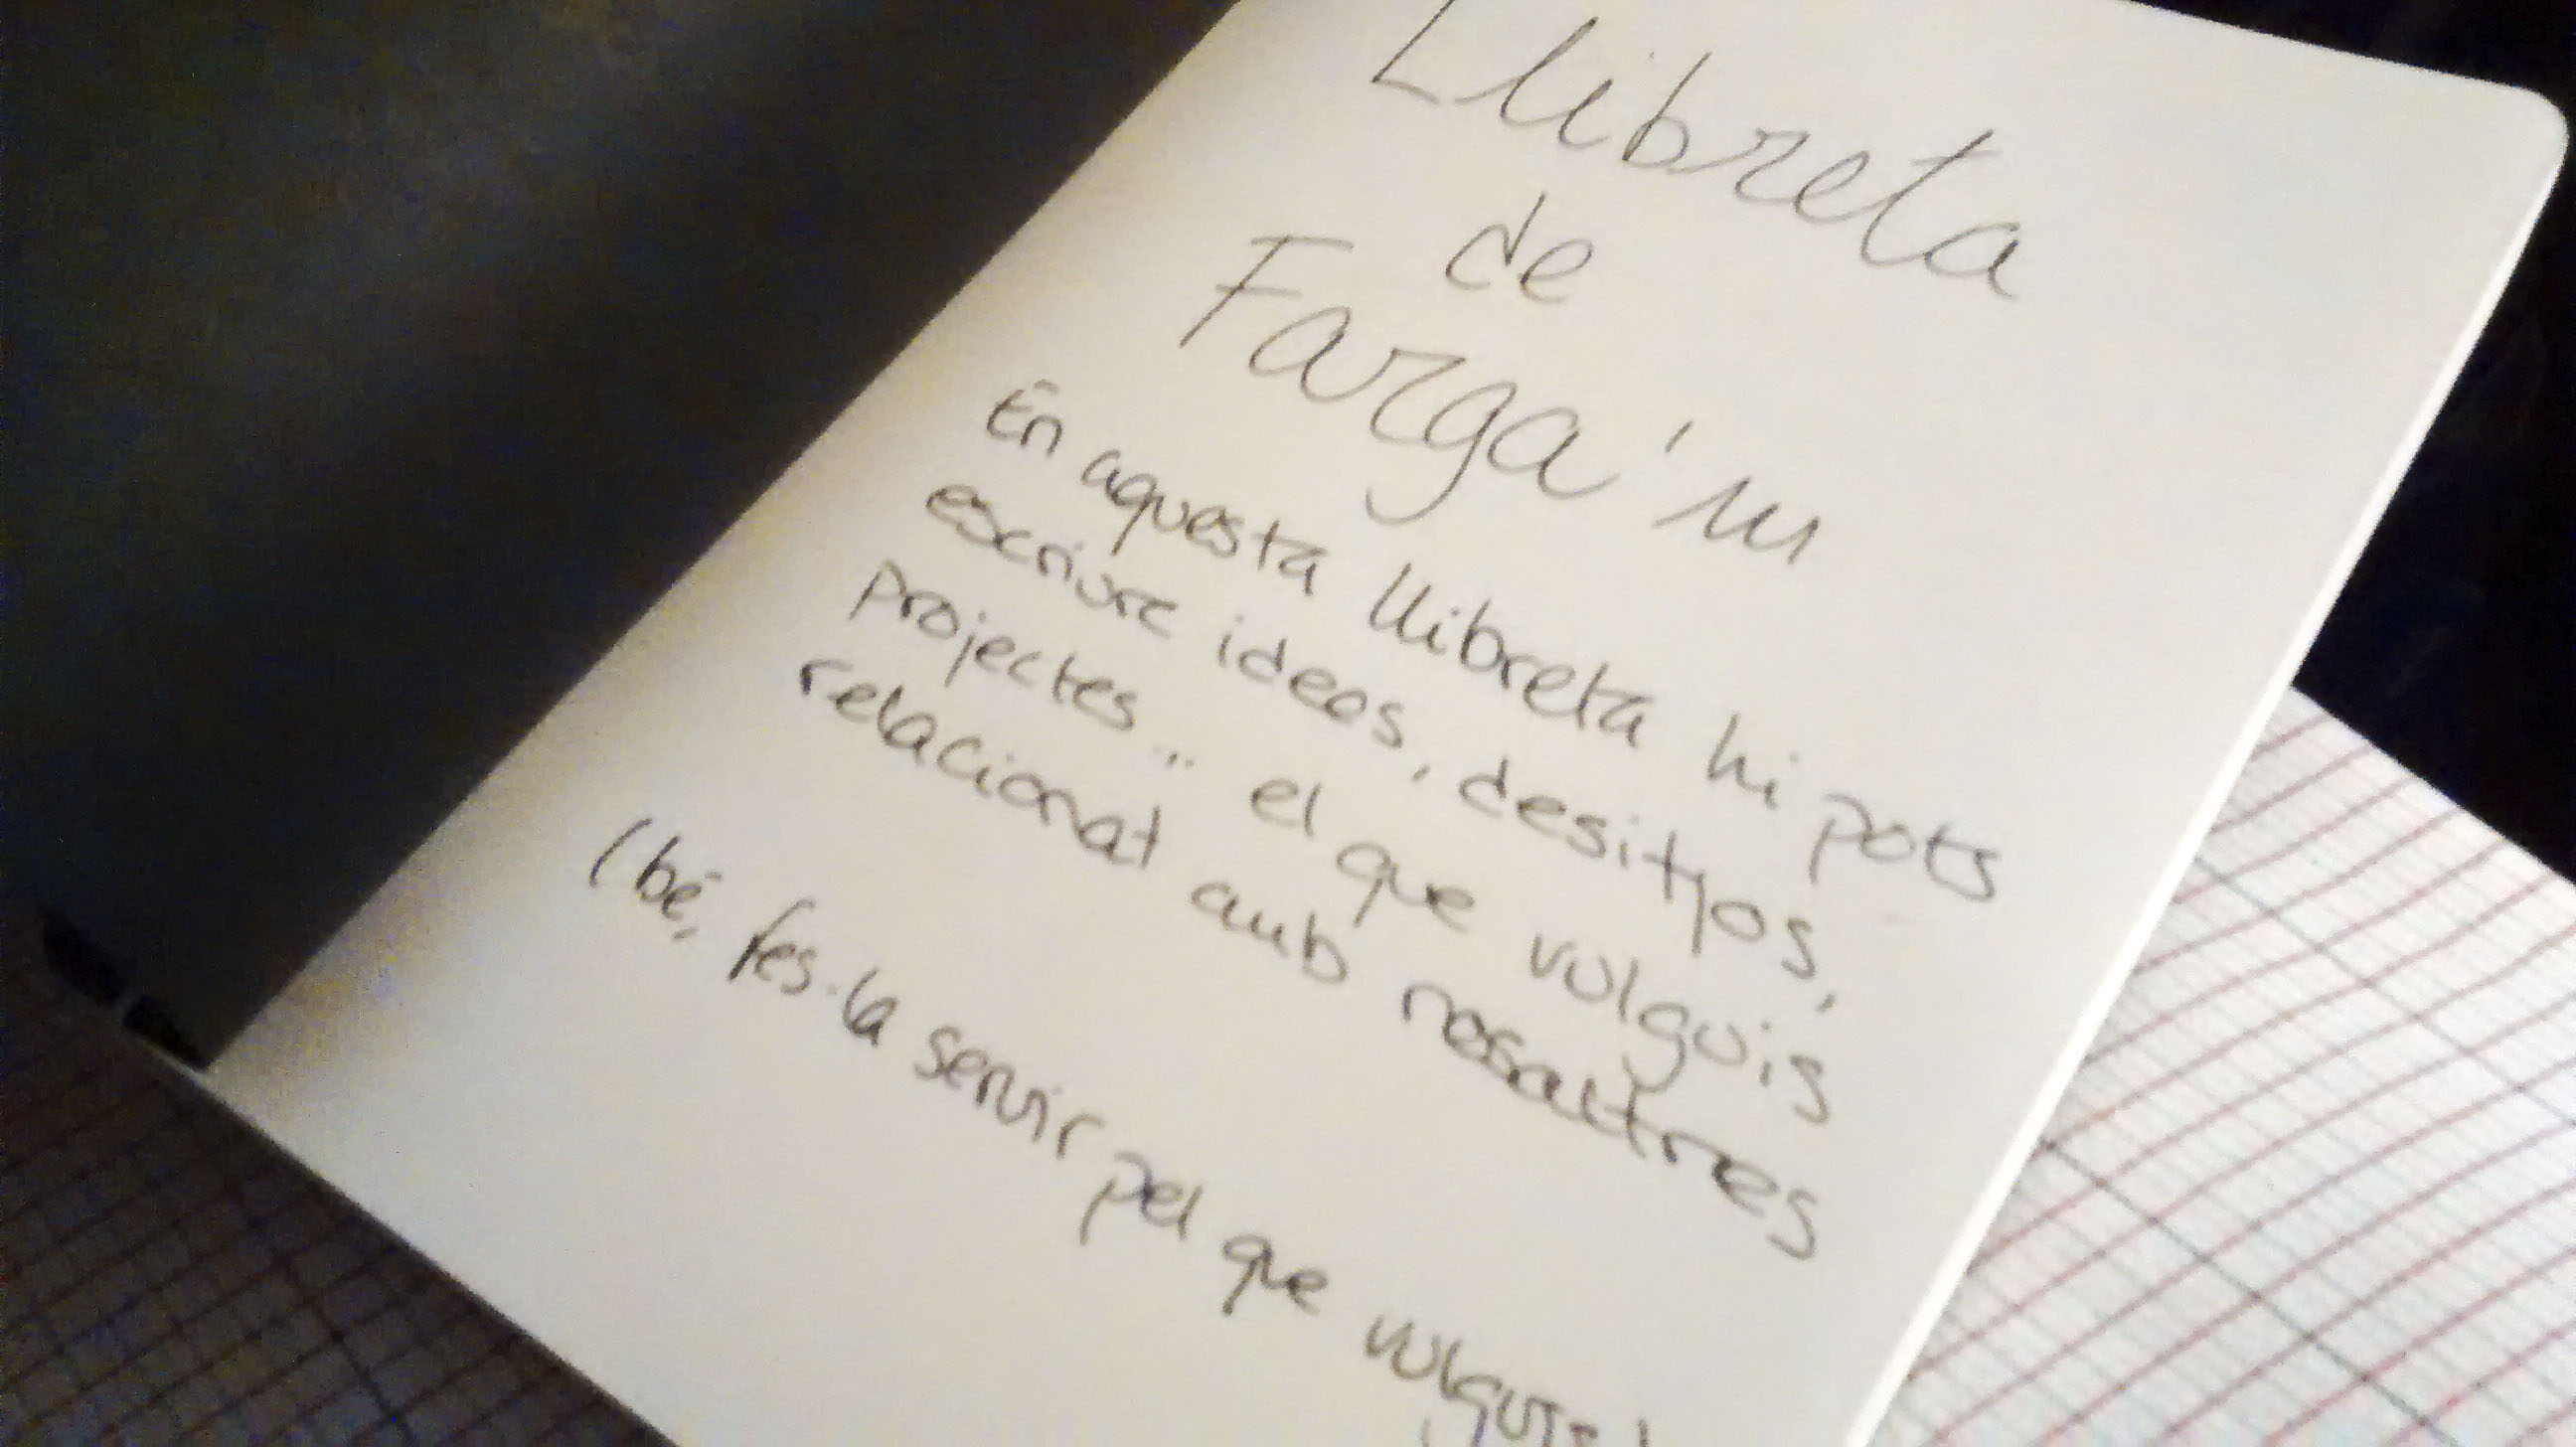 Llibreta
de
Farga'm
En aquesta llibreta hi pots
escriure idees, desitjos,
projectes... el que vulguis
relacionat amb nosaltres
(bé, fes-la servir pel que vulguis!